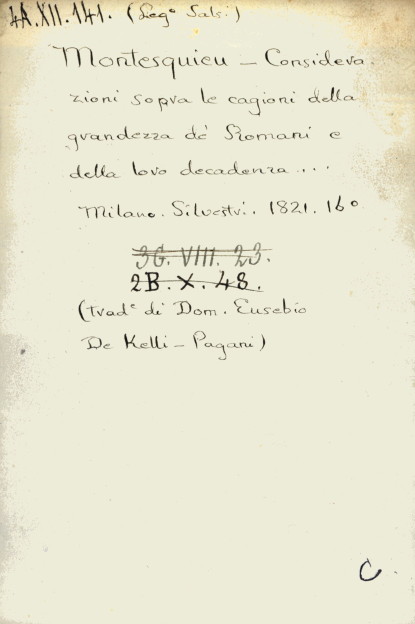 4A.XII.141. (Leg° Salsi)
Montesquieu — Considera.
zioni sopra le cagioni della
grandezza de' Romani e
della loro decadenza...
Milano. Silvestri. 1821. 16°
3G. VIII. 23.
2B. X. 48.
(trad° di Dom. Eusebio
De Kelli - Pagani)
C